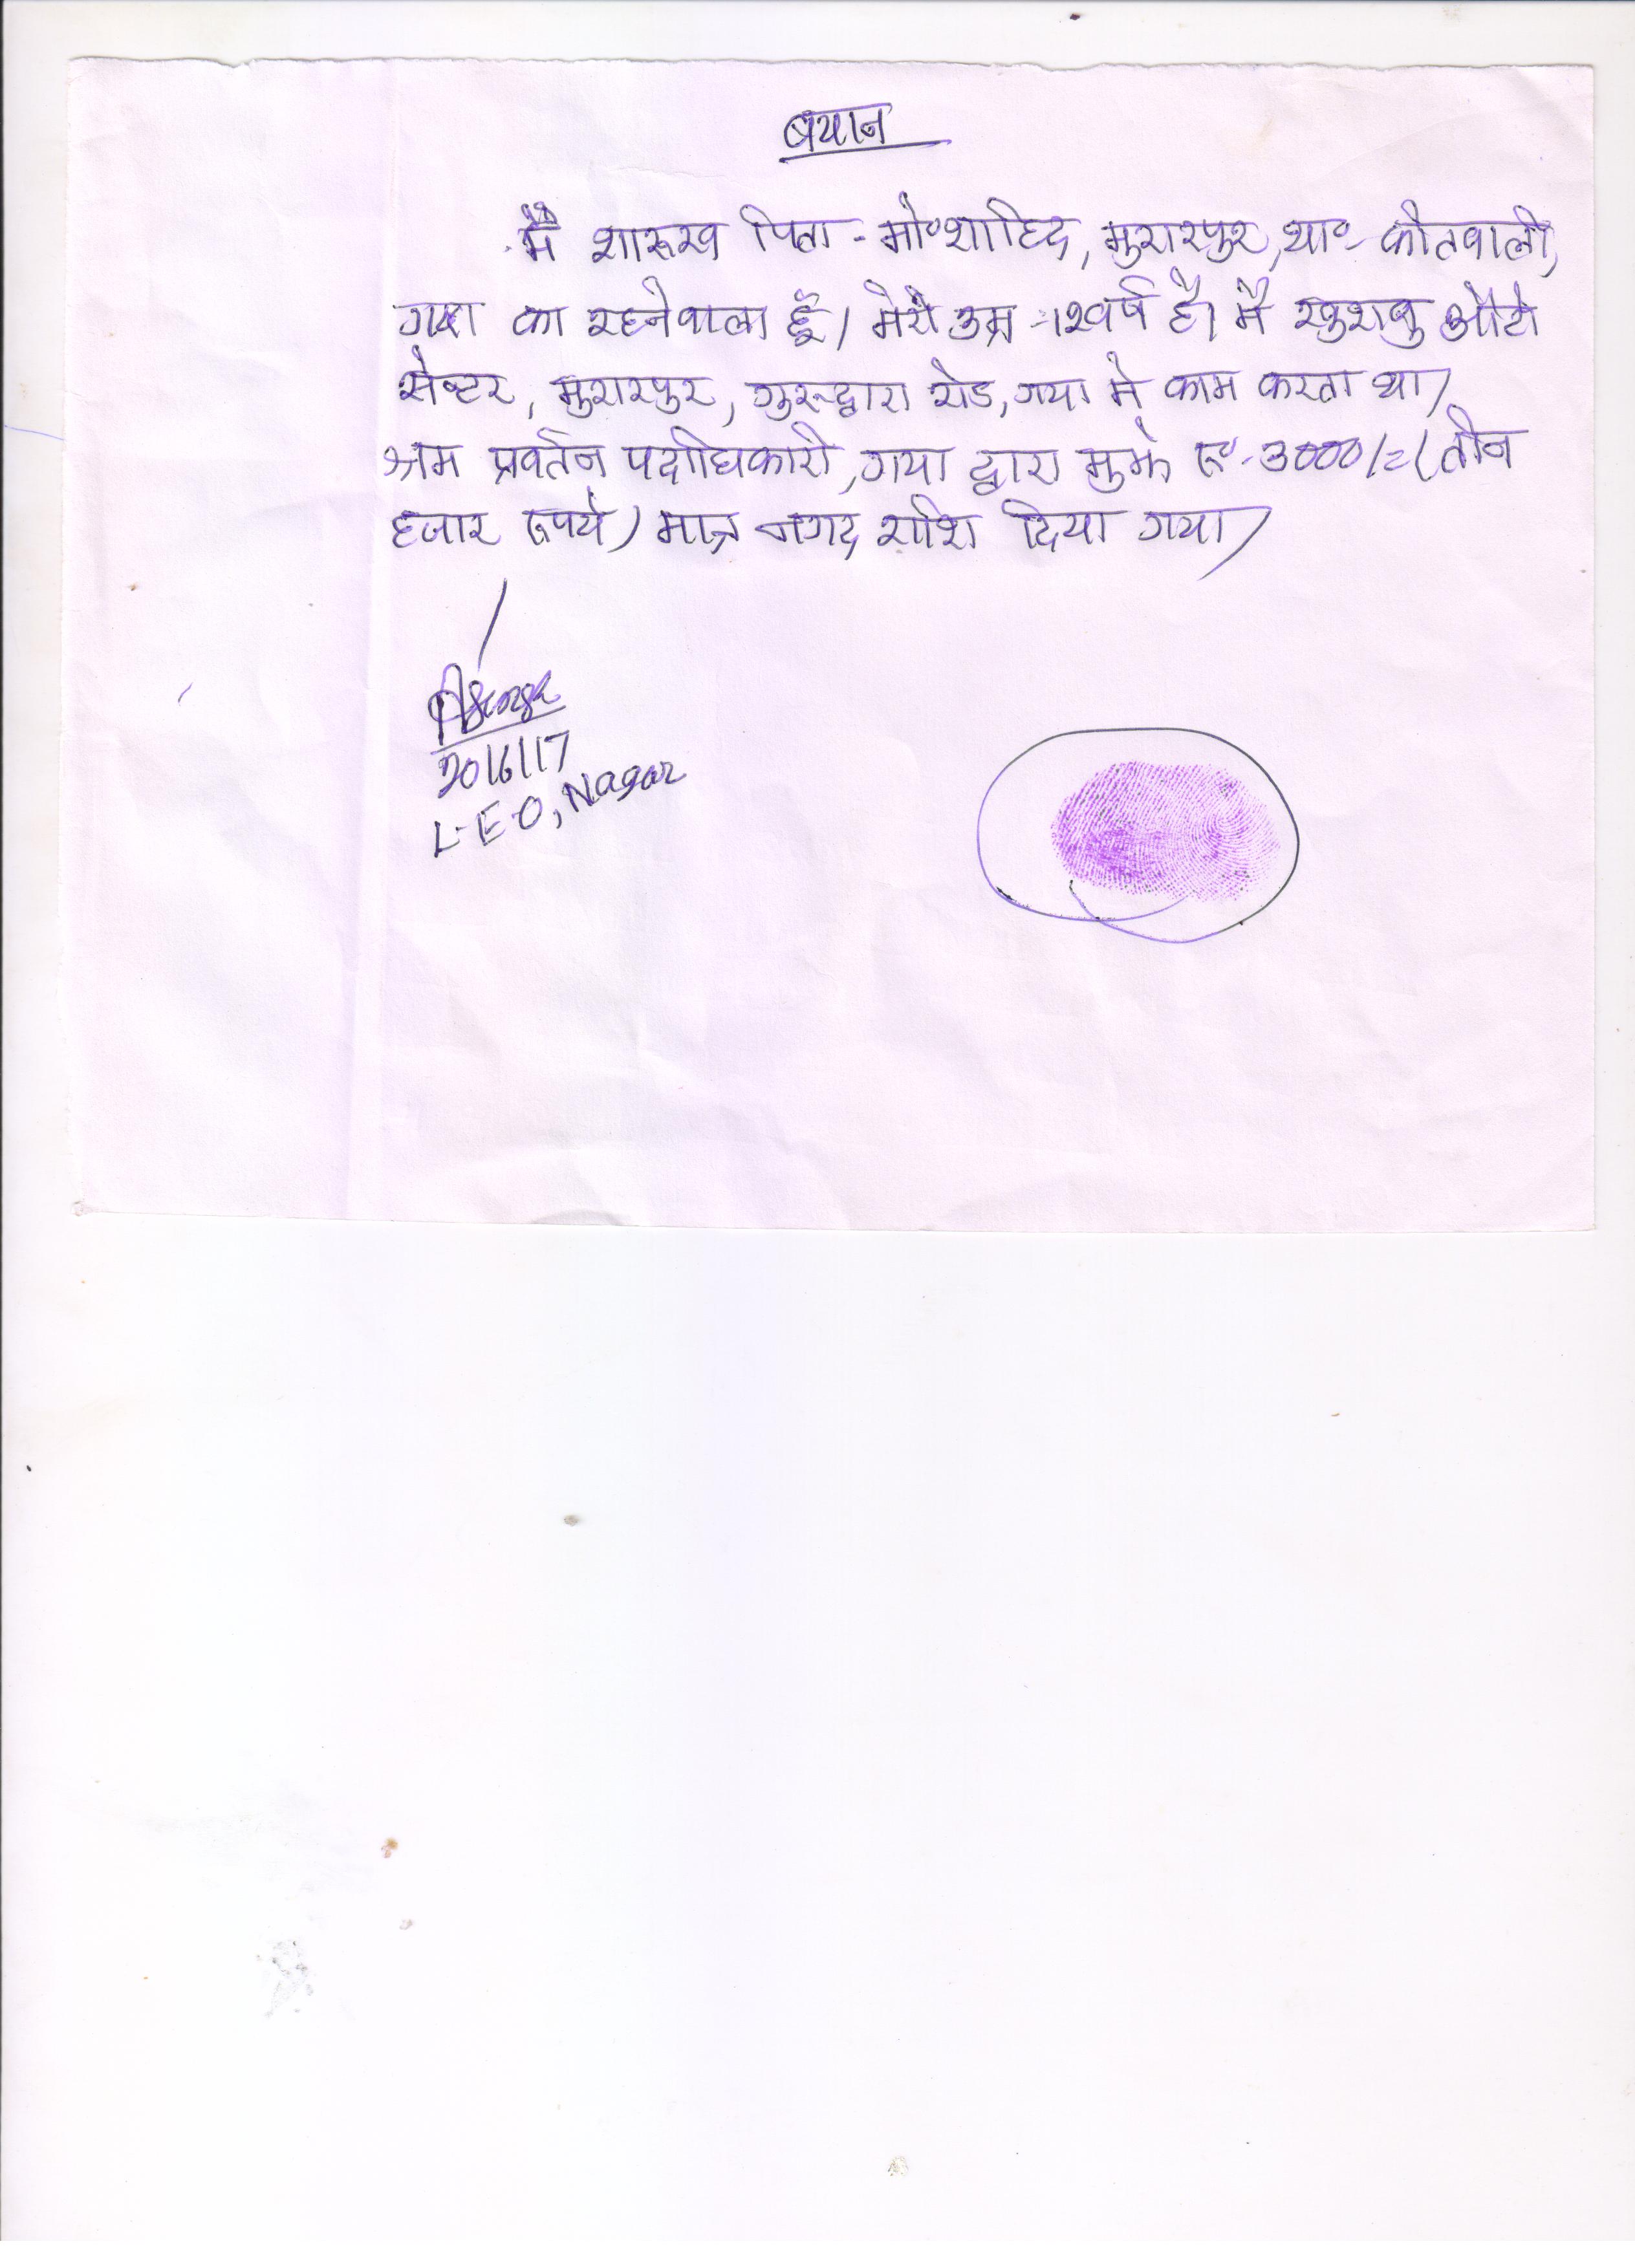 बयान
मैं शारूख पिता - मो॰ शाहिद, मुरारपुर, था॰ कोतवाली,
गया का रहनेवाला हूँ। मेरी उम्र - 12 वर्ष है। मै खुशबु औटो
सेन्टर, मुरारपुर, गुरूद्वारा रोड, गया मे काम करता था।
श्रम प्रवर्तन पदाधिकारी, गया द्वारा मुझे रू॰ - 3000/= (तीन
हजार रूपये) मात्र नगद राशि दिया गया।
20/6/17
L.E.O, Nagar